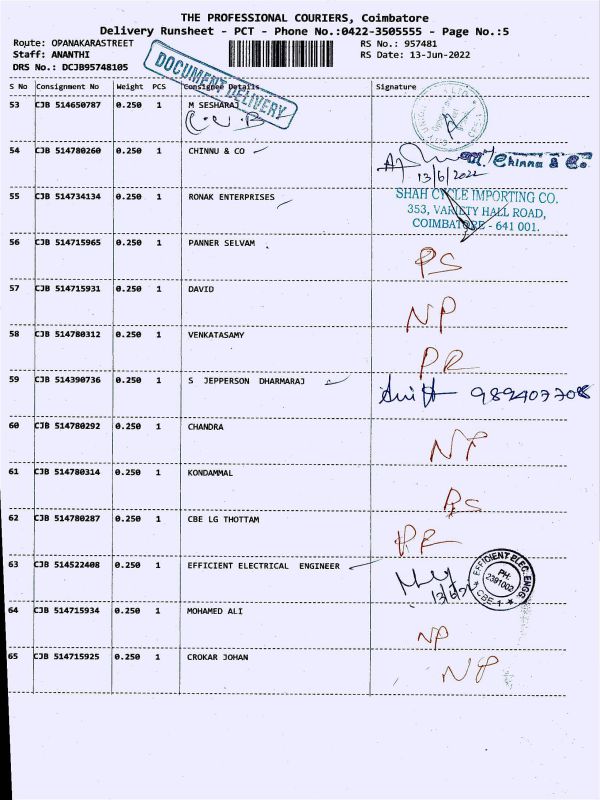 THE PROFESSIONAL COURIERS, Coimbatore
Delivery Runsheet - PCT - Phone No.:0422-3505555 - Page No.:5
Route: OPANAKARASTREET RS No.: 957481
Staff: ANANTHI RS Date: 13-Jun-2022
DRS No.: DCJB95748105
DOCUMENT DELIVERY
S No Consignment No Weight PCS Consignee Details Signature
53 CJB 514650787 0.250 1 M SESHARAJ
C.U.B
54 CJB 514780260 0.250 1 CHINNU & CO
Chinnu & Co.
13/6/2022
55 CJB 514734134 0.250 1 RONAK ENTERPRISES SHAH CYCLE IMPORTING CO.
353, VARIETY HALL ROAD,
COIMBATORE - 641 001.
56 CJB 514715965 0.250 1 PANNER SELVAM PS
57 CJB 514715931 0.250 1 DAVID NP
58 CJB 514780312 0.250 1 VENKATASAMY PR
59 CJB 514390736 0.250 1 S JEPPERSON DHARMARAJ 989407708
60 CJB 514780292 0.250 1 CHANDRA NP
61 CJB 514780314 0.250 1 KONDAMMAL PS
62 CJB 514780287 0.250 1 CBE LG THOTTAM PR
63 CJB 514522408 0.250 1 EFFICIENT ELECTRICAL ENGINEER
EFFICIENT ELEC. ENGG.
PH: 2391002
CBE-1
64 CJB 514715934 0.250 1 MOHAMED ALI NP
65 CJB 514715925 0.250 1 CROKAR JOHAN NP